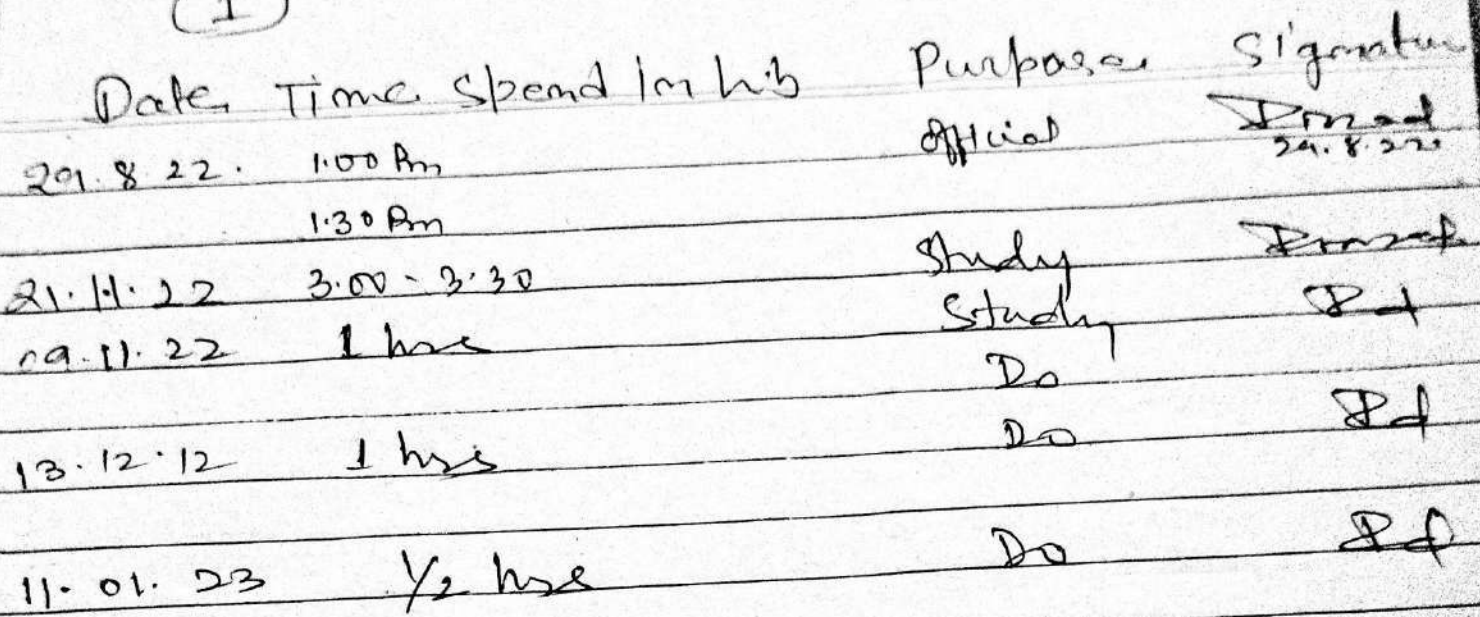 1
Date Time Spend In lib Purpose Signature
29.8.22. 1.00 Pm Official Prasad
29.8.22
1.30 Pm
21.11.22 3.00 - 3.30 Study
09.11.22 1 hrs Study
Do
13.12.12 1 hrs Do
11.01.23 1/2 hrs Do